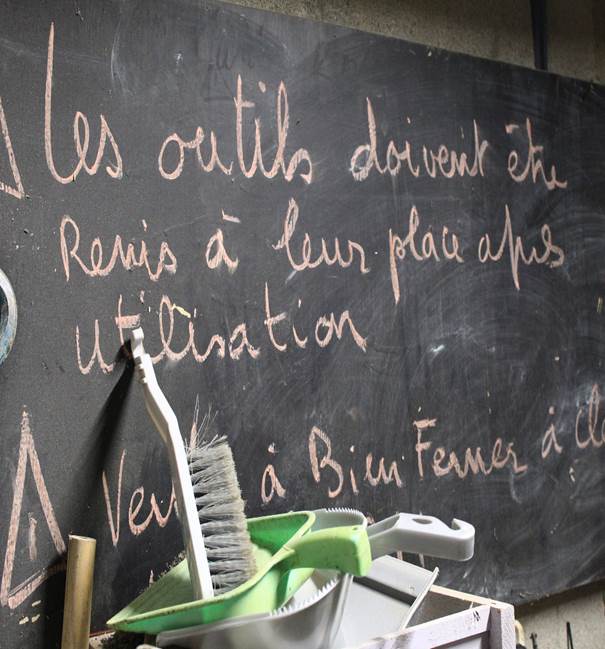 Les outils doivent être
Remis à leur place après
utilisation
à Bien Fermer à